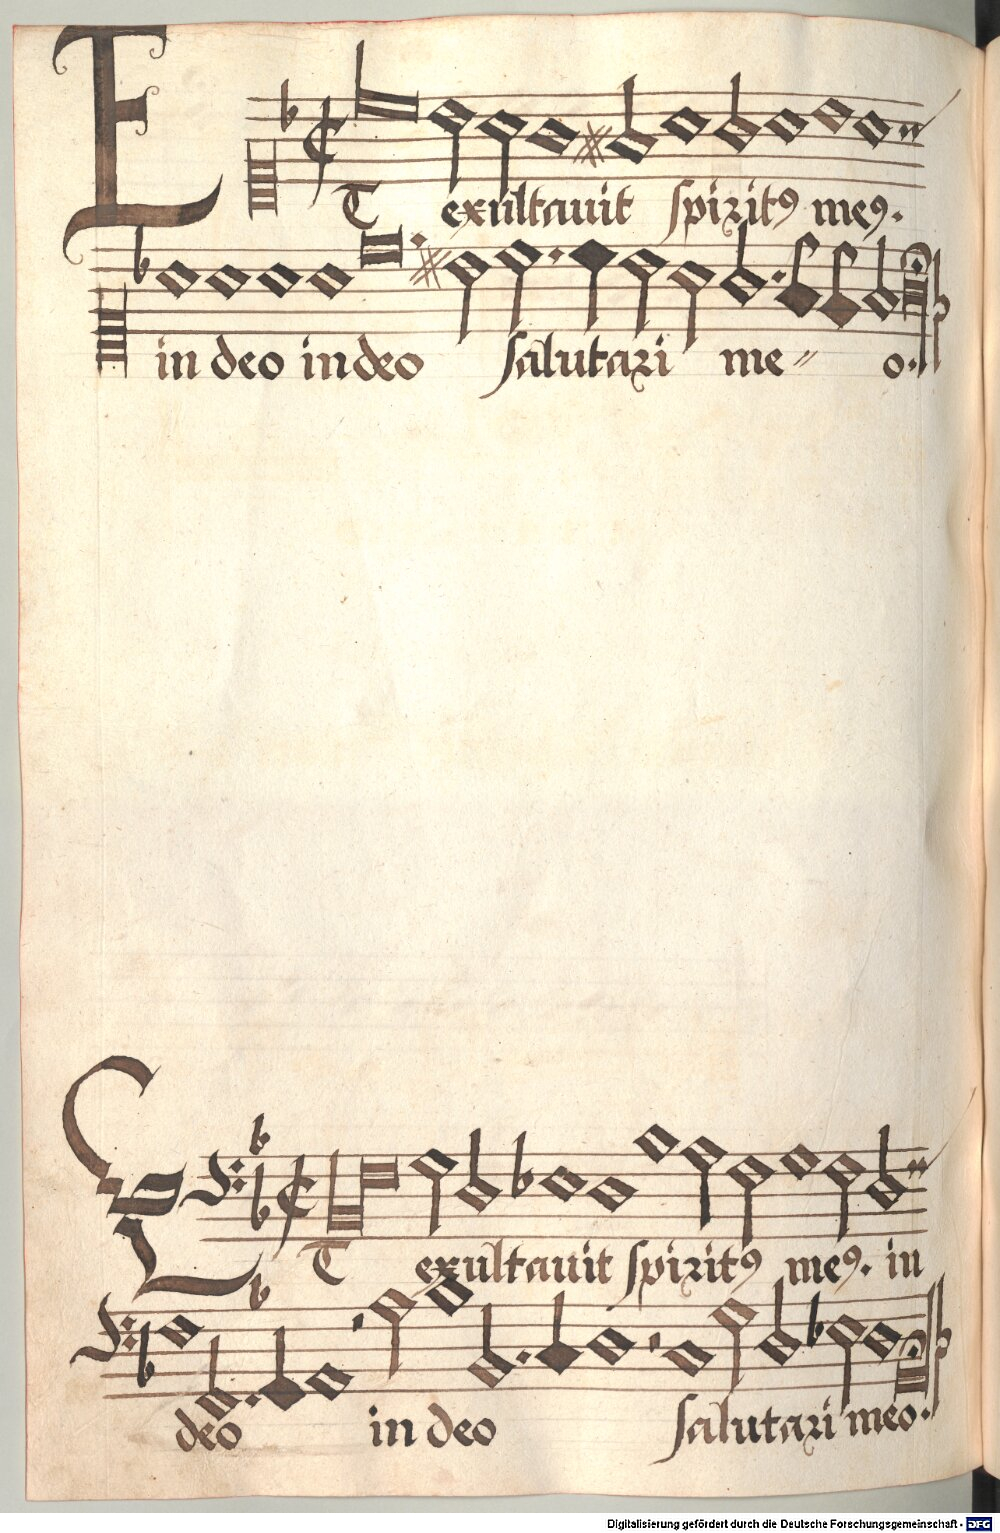 ET exultauit spiritꝰ meꝰ.
in deo in deo salutari me〃 o.
ET exultauit spiritꝰ meꝰ. in
deo in deo salutari meo.
Digitalisierung gefördert durch die Deutsche Forschungsgemeinschaft - DFG